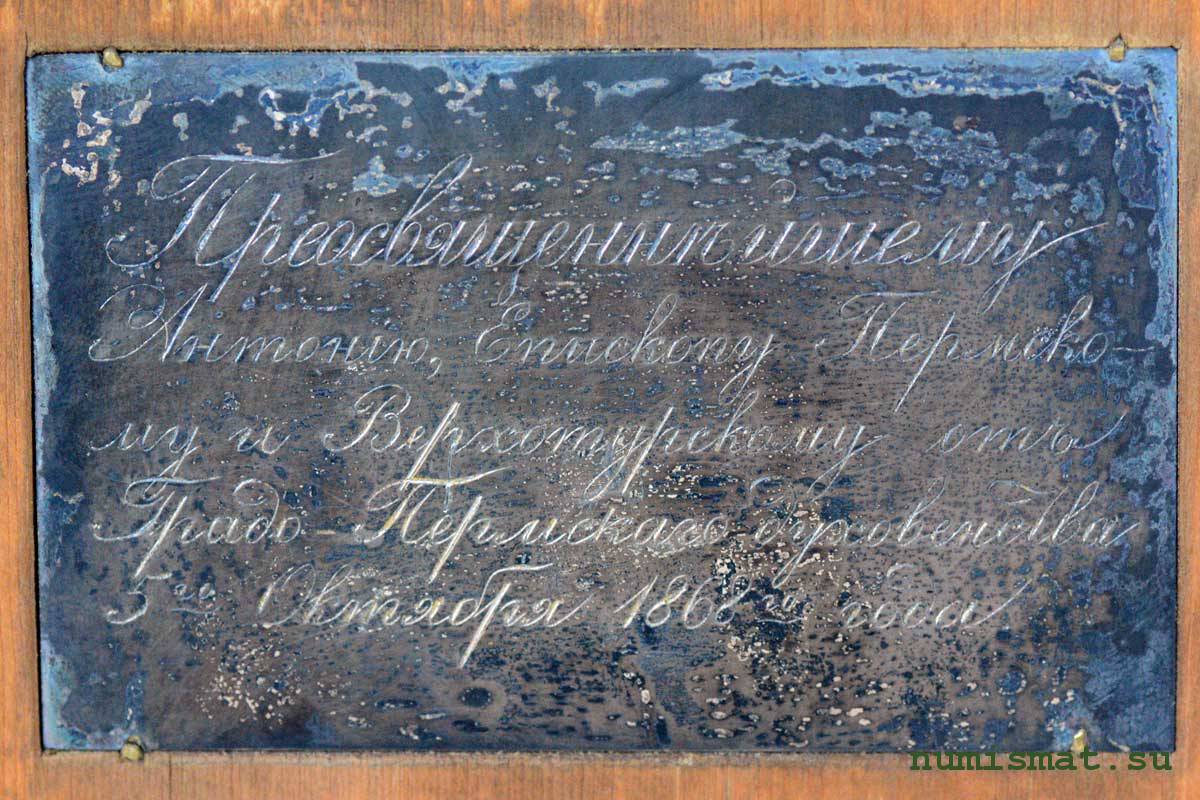 Преосвященнѣйшему
Антонію, Епископу Пермско-
му и Верхотурскому отъ
Градо-Пермскаго духовенства
5го Октября 1868го года.
numismat.su